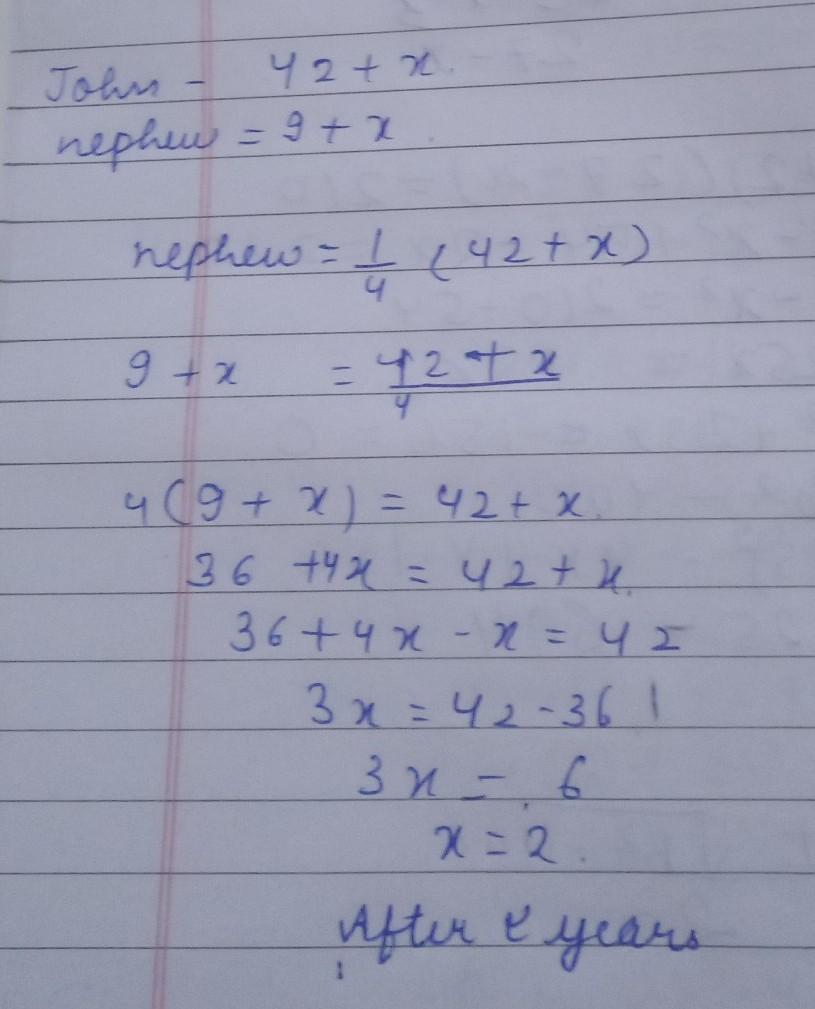 John - 42 + x.
nephew = 9 + x.
nephew = 1/4 (42 + x)
9 + x = 42 + x / 4
4(9 + x) = 42 + x.
36 + 4x = 42 + x.
36 + 4x - x = 42
3x = 42 - 36
3x = 6
x = 2.
After 2 years